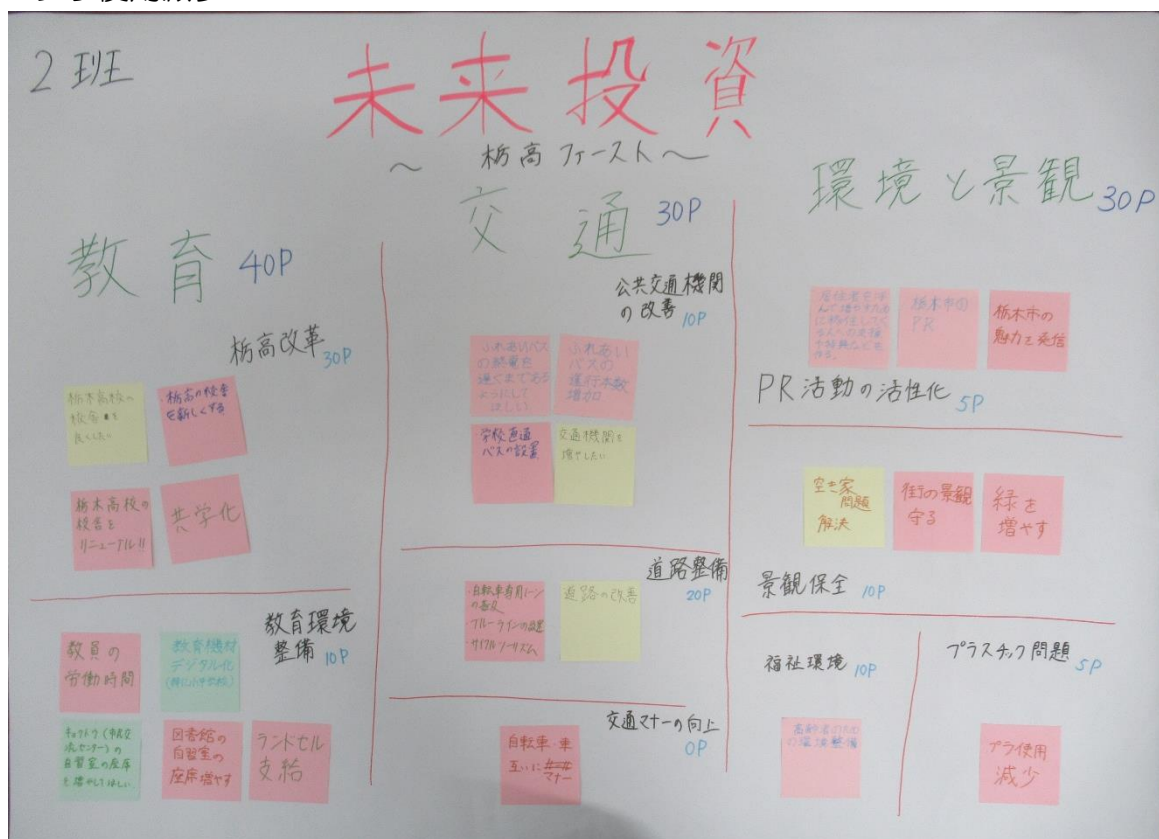 2班
未来投資
～栃高ファースト～
教育 40P
栃高改革
30P
栃木高校の
校舎を
良くしたい
栃高の校舎
を新しくする
栃木高校の
校舎を
リニューアル!!
共学化
教育環境
整備 10P
教員の
労働時間
教育機材
デジタル化
(特に小中学校)
自習室の座席
を増やしてほしい
図書館の
自習室の
座席増やす
ランドセル
支給
交通 30P
公共交通機関
の改善 10P
ふれあいバス
の終電を
遅くまである
ようにして
ほしい
ふれあい
バスの
運行本数
増加
学校直通
バスの設置
交通機関を
増やしたい
道路整備
20P
自転車専用レーン
の普及
ブルーラインの設置
サイクルツーリズム
道路の改善
交通マナーの向上
0P
自転車・車
互いに
マナー
環境と景観 30P
栃木市の
PR
栃木市の
魅力を発信
PR活動の活性化 5P
空き家
問題
解決
街の景観
守る
緑を
増やす
景観保全 10P
福祉環境 10P
高齢者のための
環境整備
プラスチック問題
5P
プラ使用
減少